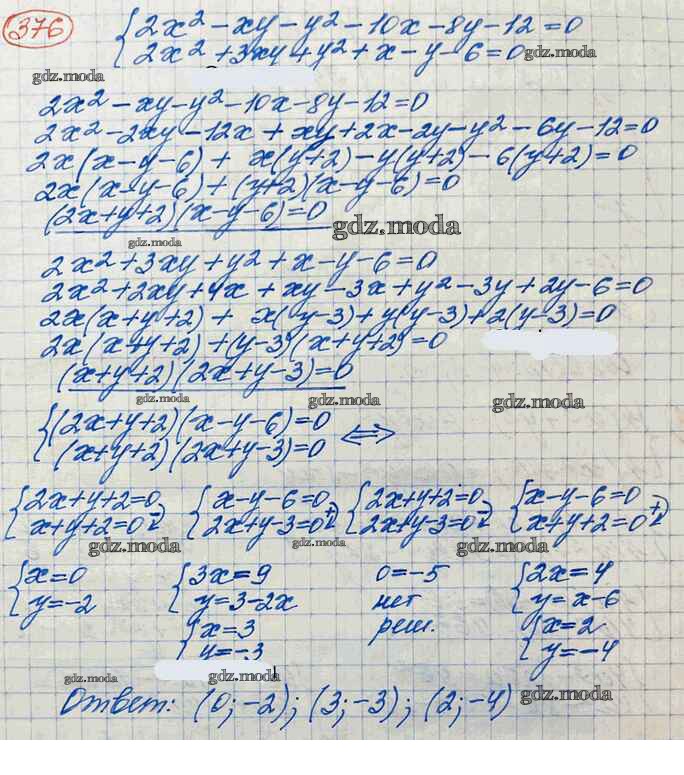 376
{ 2x² - xy - y² - 10x - 8y - 12 = 0
{ 2x² + 3xy + y² + x - y - 6 = 0 gdz.moda
gdz.moda
2x² - xy - y² - 10x - 8y - 12 = 0
2x² - 2xy - 12x + xy + 2x - 2y - y² - 6y - 12 = 0
2x(x-y-6) + x(y+2) - y(y+2) - 6(y+2) = 0
2x(x-y-6) + (y+2)(x-y-6) = 0
(2x+y+2)(x-y-6) = 0 gdz.moda
gdz.moda
2x² + 3xy + y² + x - y - 6 = 0
2x² + 2xy + 4x + xy - 3x + y² - 3y + 2y - 6 = 0
2x(x+y+2) + x(y-3) + y(y-3) + 2(y-3) = 0
2x(x+y+2) + (y-3)(x+y+2) = 0
(x+y+2)(2x+y-3) = 0
gdz.moda gdz.moda gdz.moda
{ (2x+y+2)(x-y-6) = 0
{ (x+y+2)(2x+y-3) = 0 <=>
{ 2x+y+2=0 { x-y-6=0 { 2x+y+2=0 { x-y-6=0
{ x+y+2=0 - { 2x+y-3=0 + { 2x+y-3=0 - { x+y+2=0 +
gdz.moda gdz.moda gdz.moda
{ x=0 { 3x=9 0=-5 { 2x=4
{ y=-2 { y=3-2x нет { y=x-6
{ x=3 реш. { x=2
{ y=-3 { y=-4
gdz.moda gdz.moda
Ответ: (0;-2); (3;-3); (2;-4) gdz.moda